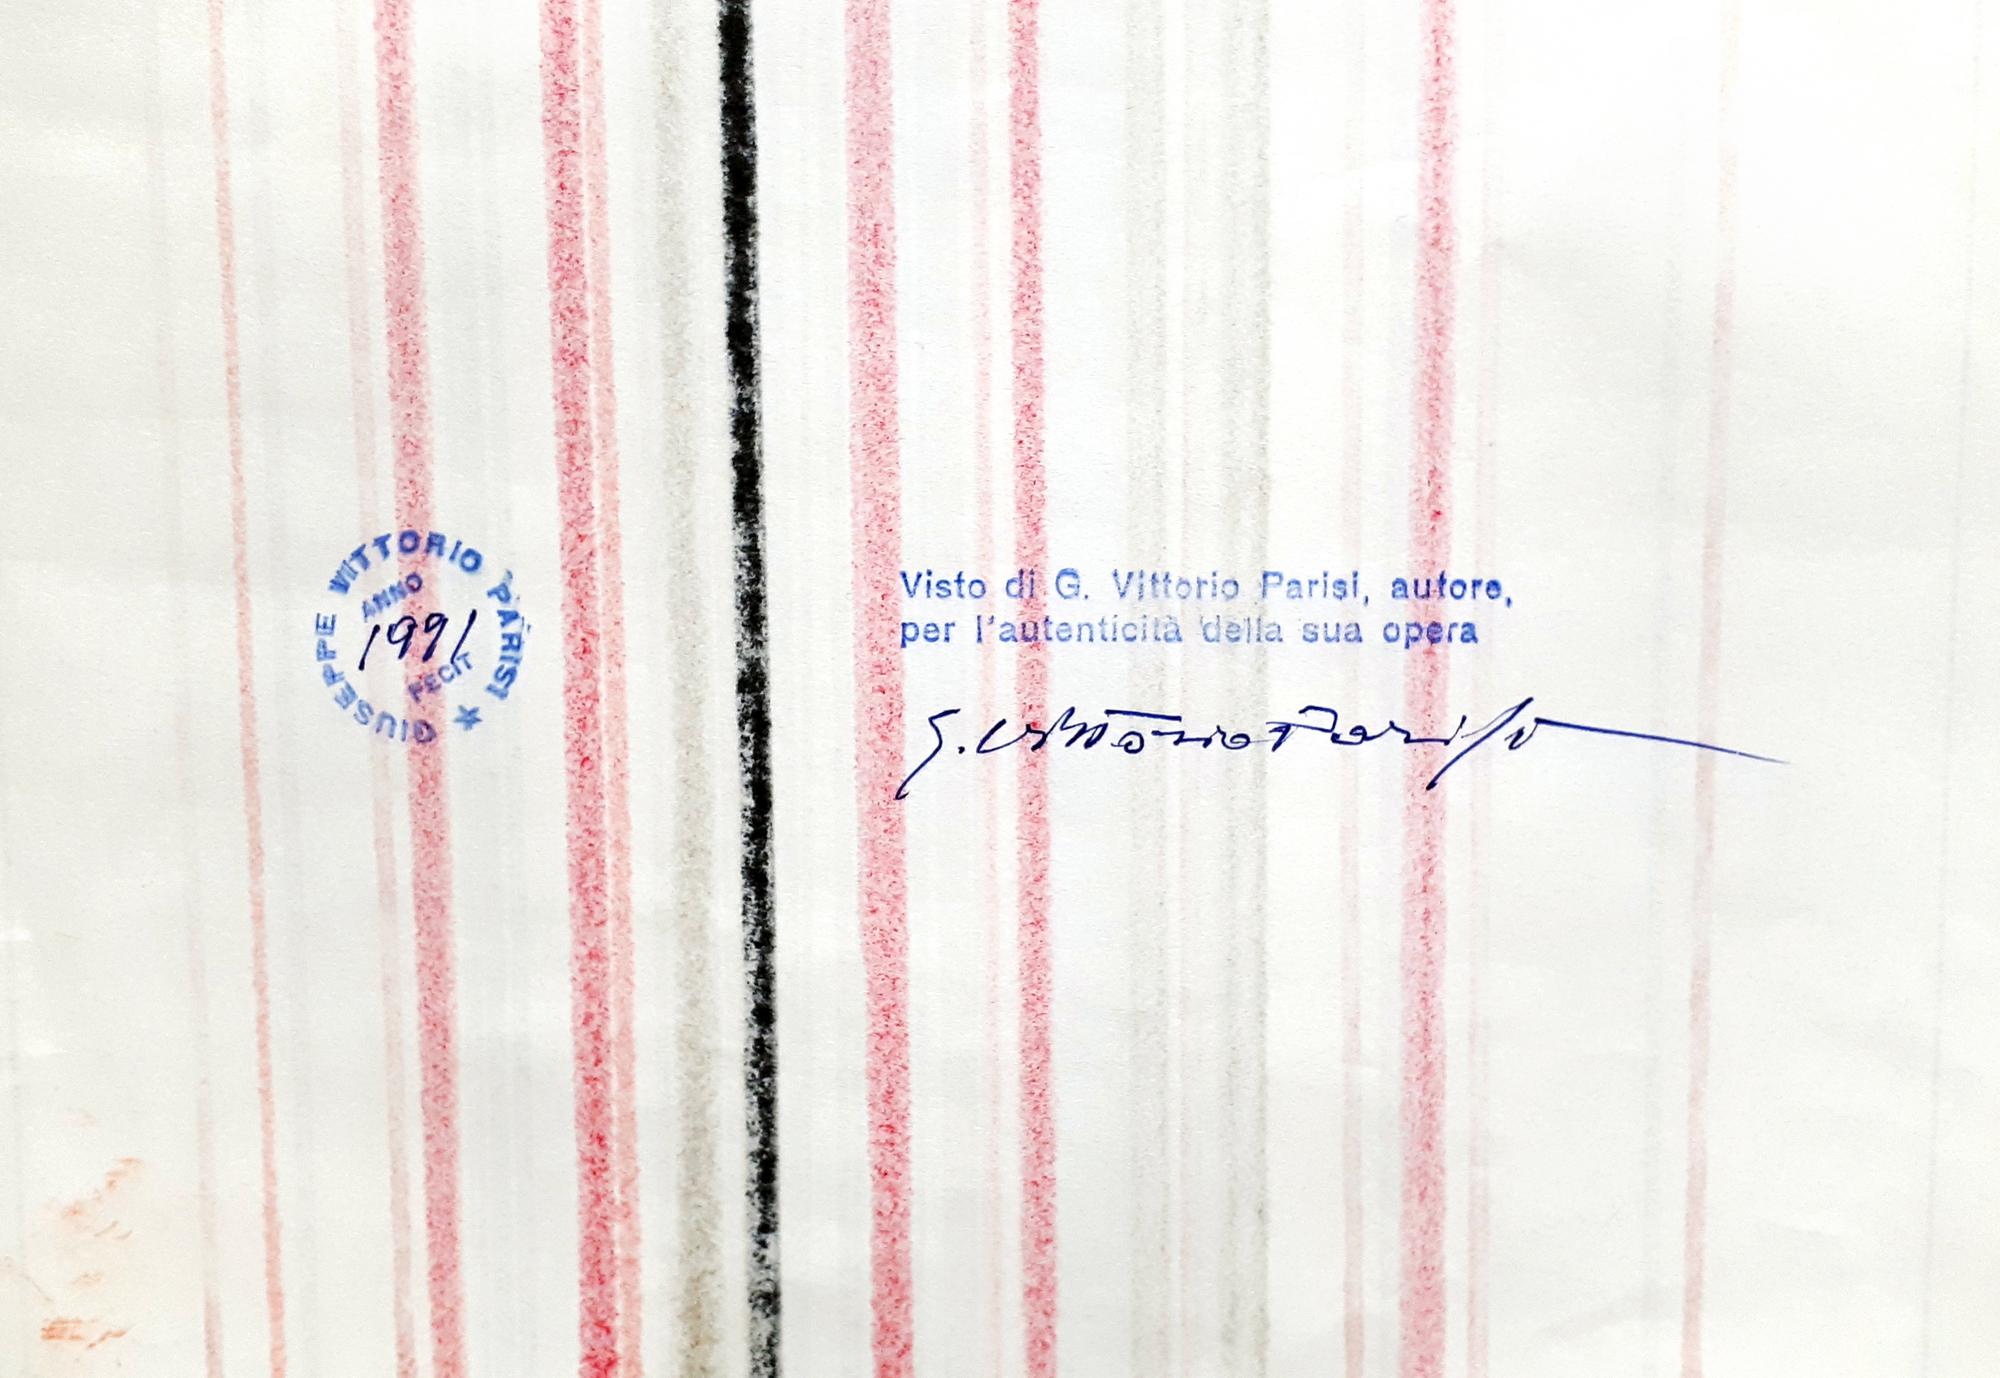 GIUSEPPE VITTORIO PARISI ★
ANNO
1991
FECIT
Visto di G. Vittorio Parisi, autore,
per l'autenticità della sua opera
G. Vittorio Parisi